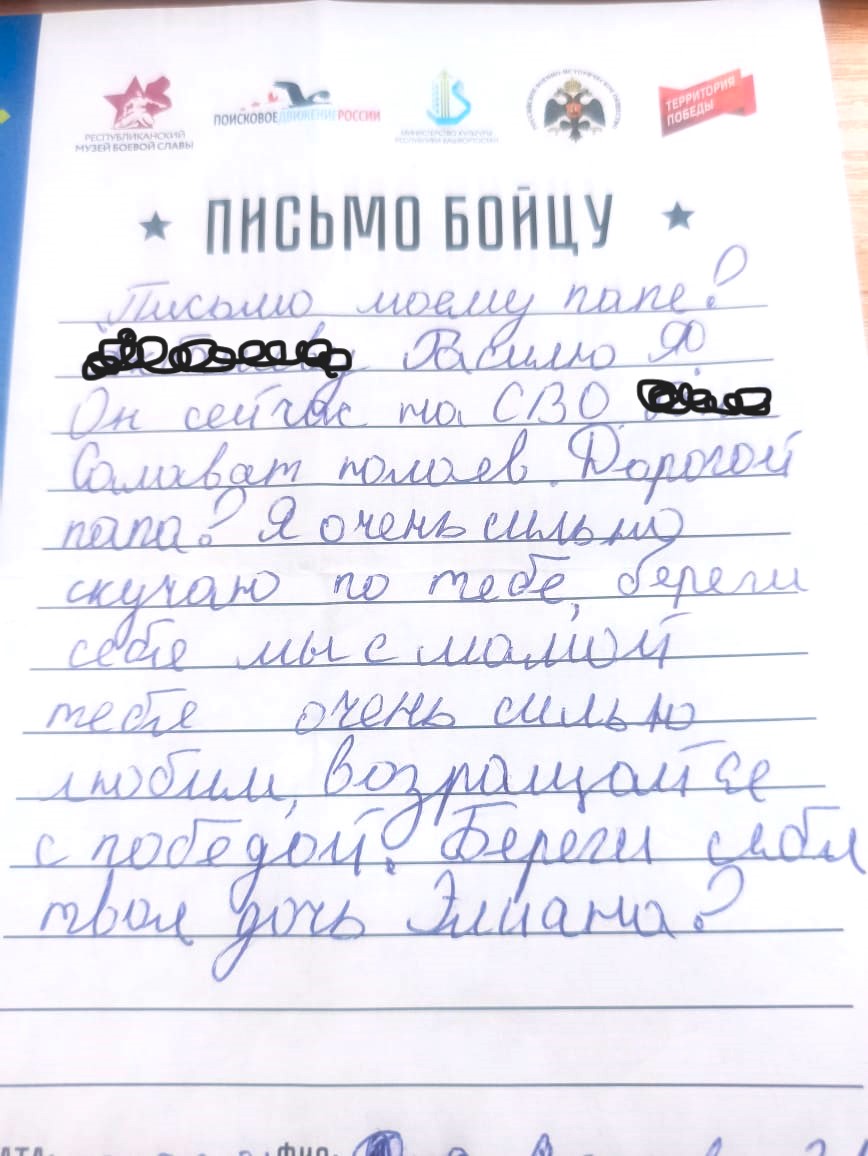 РЕСПУБЛИКАНСКИЙ
МУЗЕЙ БОЕВОЙ СЛАВЫ
ПОИСКОВОЕДВИЖЕНИЕРОССИИ
МИНИСТЕРСТВО КУЛЬТУРЫ
РЕСПУБЛИКИ БАШКОРТОСТАН
ТЕРРИТОРИЯ
ПОБЕДЫ
ПИСЬМО БОЙЦУ
Письмо моему папе!
Он сейчас на СВО
Салават
Дорогой
папа! Я очень сильно
скучаю по тебе, береги
себя мы с мамой
тебя очень сильно
любим, возращайся
с победой. Береги себя
твоя дочь Элиана!
ФИО: